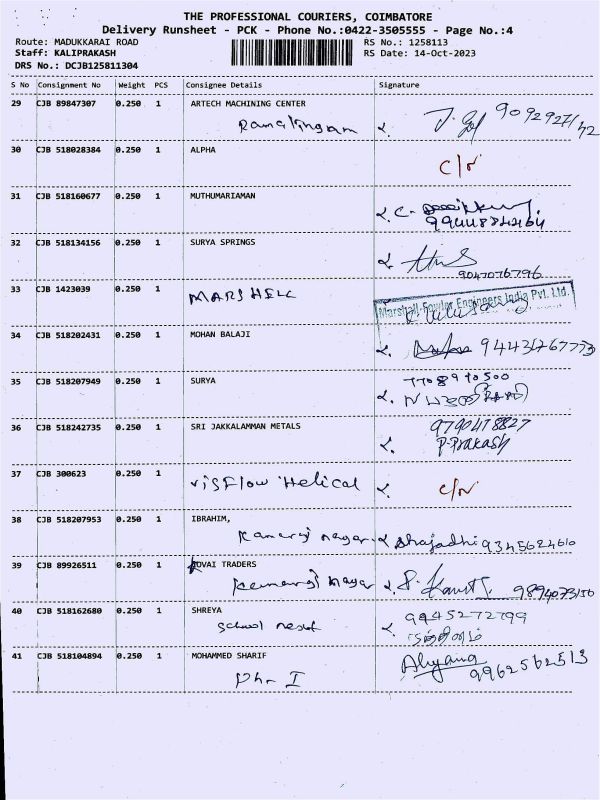 THE PROFESSIONAL COURIERS, COIMBATORE
Delivery Runsheet - PCK - Phone No.:0422-3505555 - Page No.:4
Route: MADUKKARAI ROAD RS No.: 1258113
Staff: KALIPRAKASH RS Date: 14-Oct-2023
DRS No.: DCJB125811304
S No Consignment No Weight PCS Consignee Details Signature
29 CJB 89847307 0.250 1 ARTECH MACHINING CENTER
Ramalingam
30 CJB 518028384 0.250 1 ALPHA
C/N
31 CJB 518160677 0.250 1 MUTHUMARIAMAN
32 CJB 518134156 0.250 1 SURYA SPRINGS
9047076796
33 CJB 1423039 0.250 1 MARSHELL
Marshall-Fowler Engineers India Pvt. Ltd.
34 CJB 518202431 0.250 1 MOHAN BALAJI
35 CJB 518207949 0.250 1 SURYA
7708970500
36 CJB 518242735 0.250 1 SRI JAKKALAMMAN METALS
9790478827
P-Prakash
37 CJB 300623 0.250 1
VisFlow Helical C/N
38 CJB 518207953 0.250 1 IBRAHIM,
Kamaraj nagar Shajadhi 9345624610
39 CJB 89926511 0.250 1 KOVAI TRADERS
Kamaraj Nagar 9894073150
40 CJB 518162680 0.250 1 SHREYA
9945272799
School
41 CJB 518104894 0.250 1 MOHAMMED SHARIF
9962562513
Ph- I